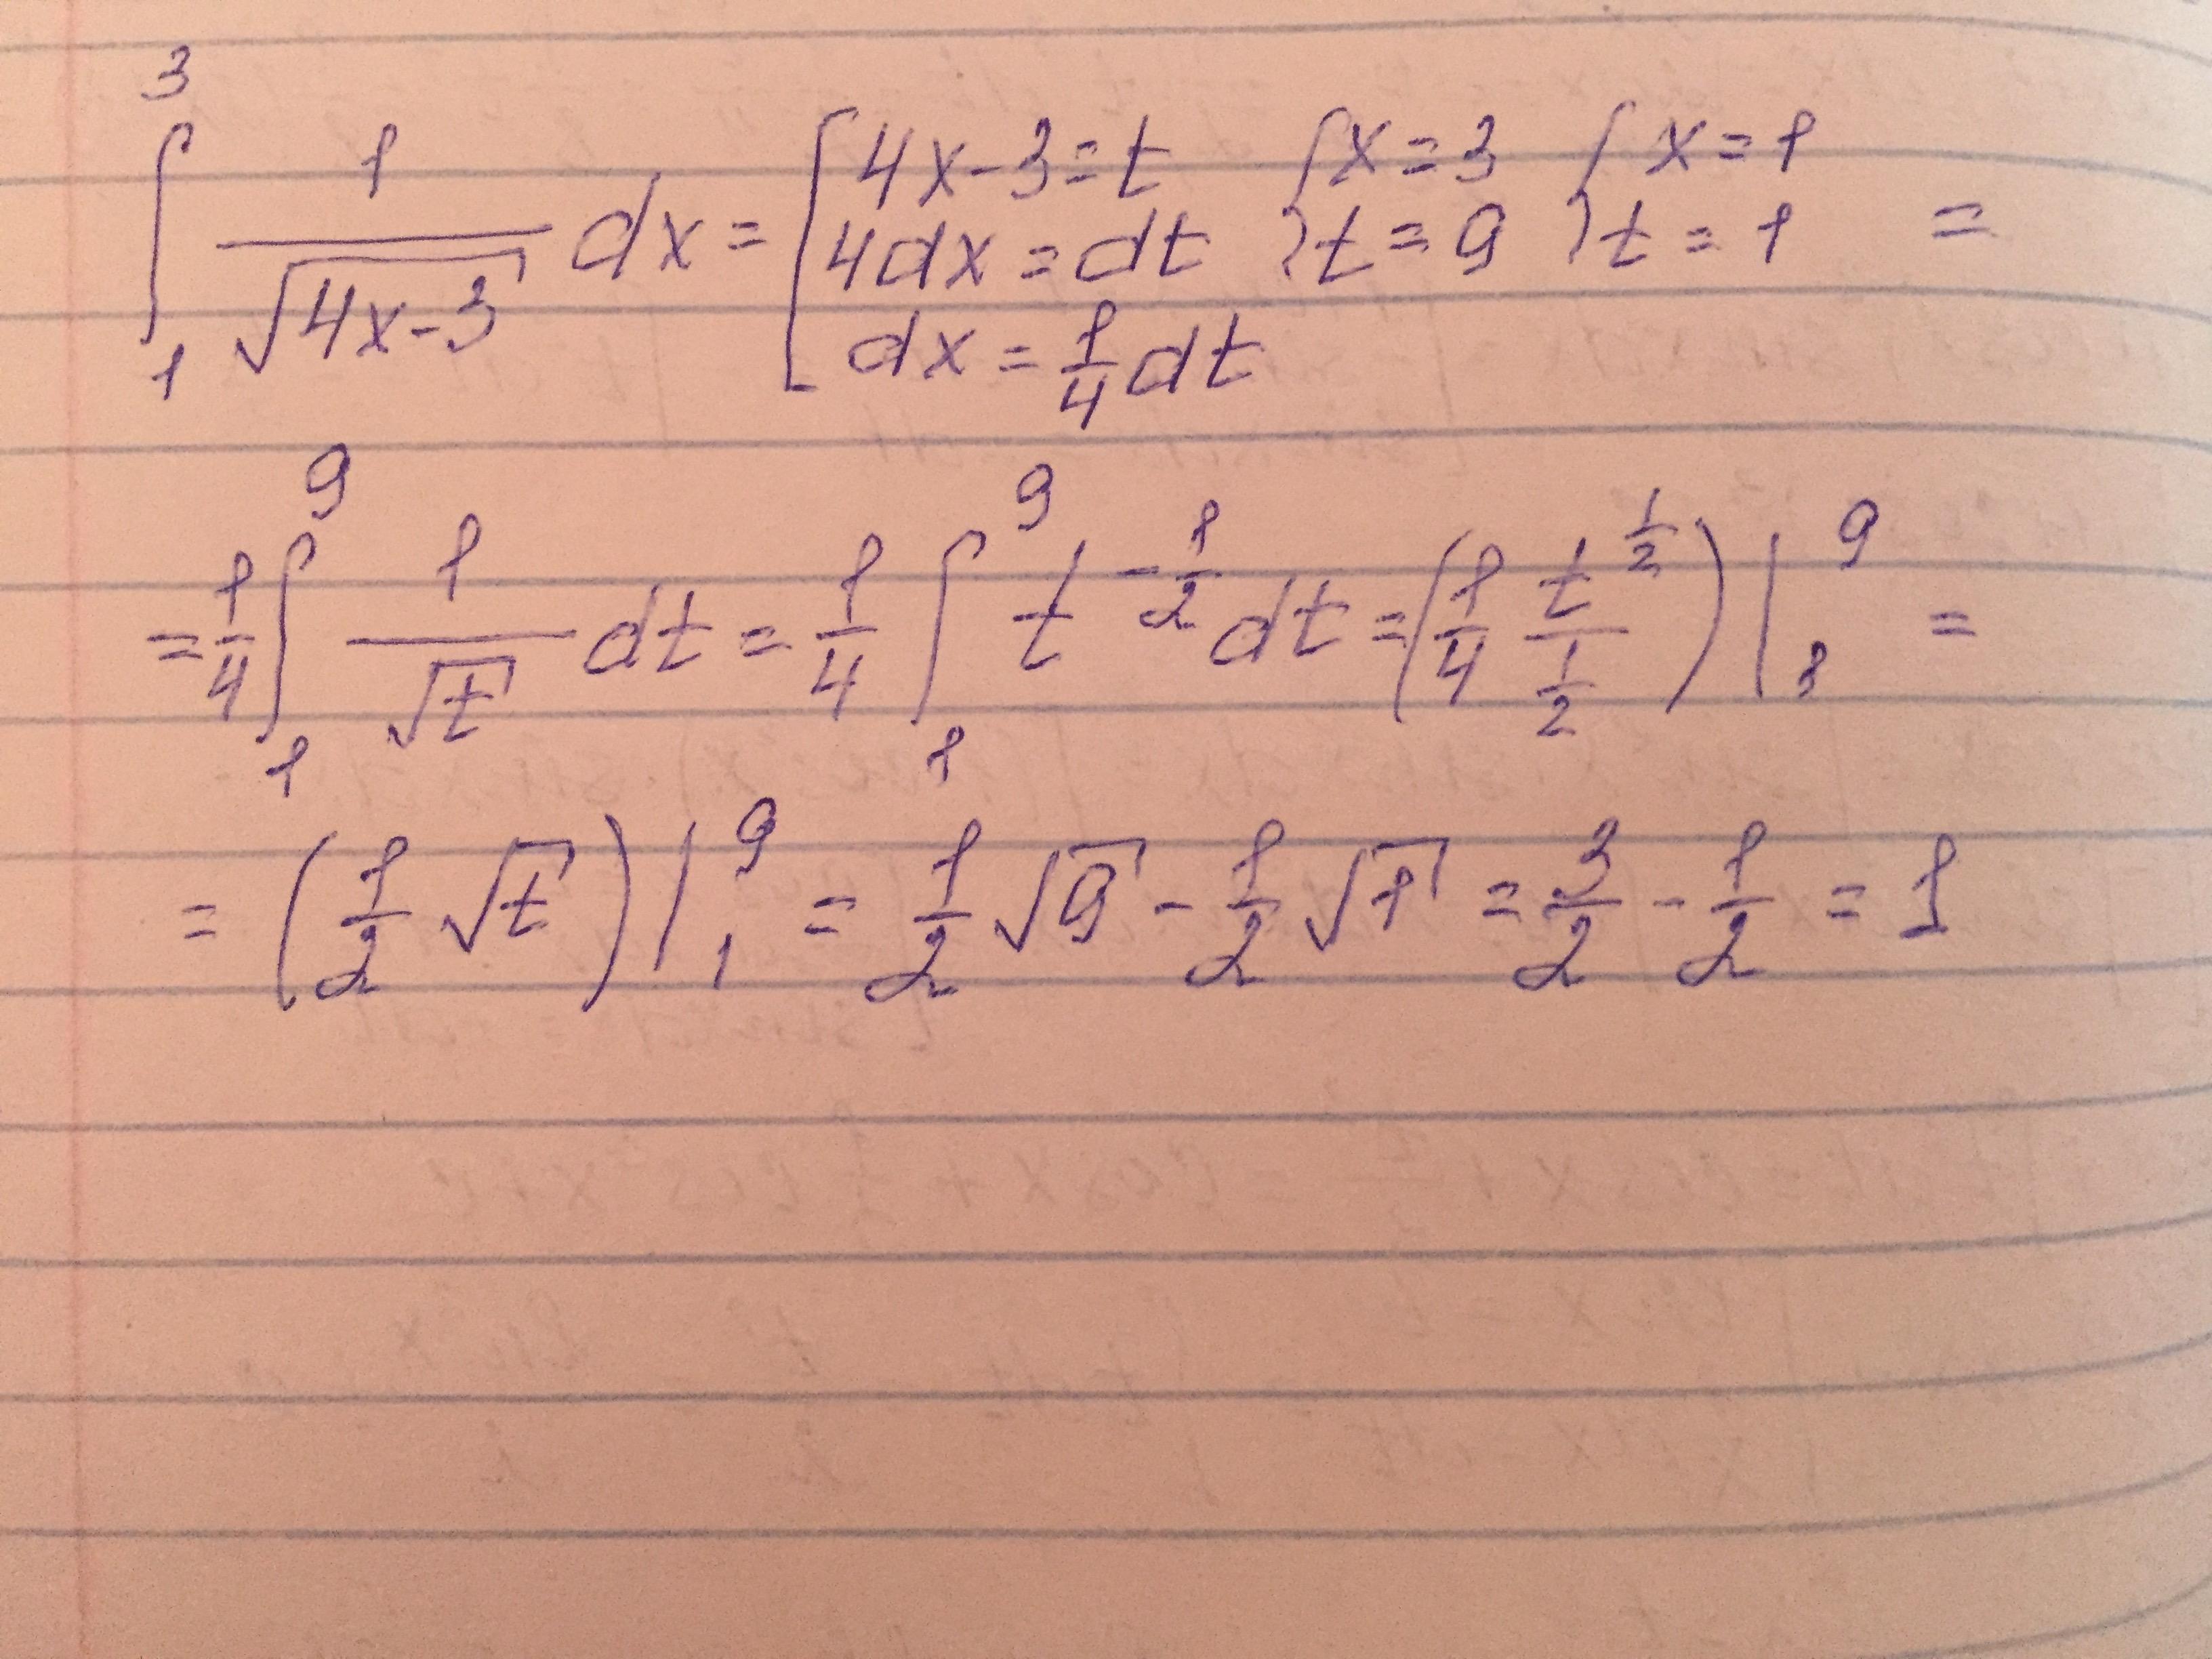 ∫₁³ 1/√(4x-3) dx = [4x-3=t {x=3 {x=1 =
4dx=dt t=9 t=1
dx=1/4 dt
= 1/4 ∫₁⁹ 1/√t dt = 1/4 ∫₁⁹ t^(-1/2) dt = (1/4 t^(1/2)/(1/2)) |₃⁹ =
= (1/2 √t) |₁⁹ = 1/2 √9 - 1/2 √1 = 3/2 - 1/2 = 1